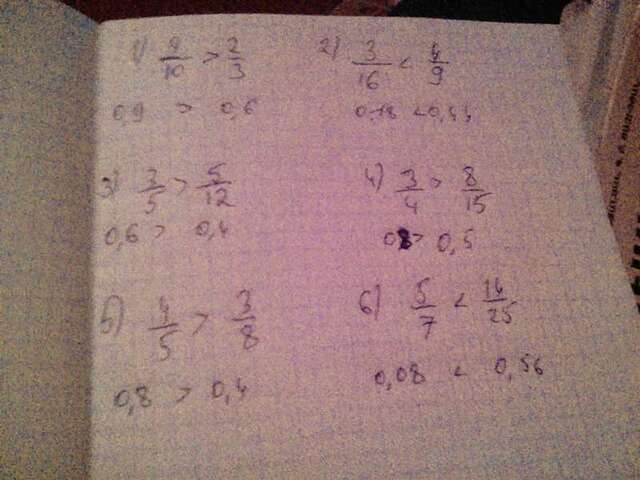 1) 9/10 > 2/3 2) 3/16 < 4/9
0,9 > 0,6 0,18 < 0,44
3) 3/5 > 5/12 4) 3/4 > 8/15
0,6 > 0,4 0,8 > 0,5
5) 4/5 > 3/8 6) 5/7 < 14/25
0,8 > 0,4 0,08 < 0,56